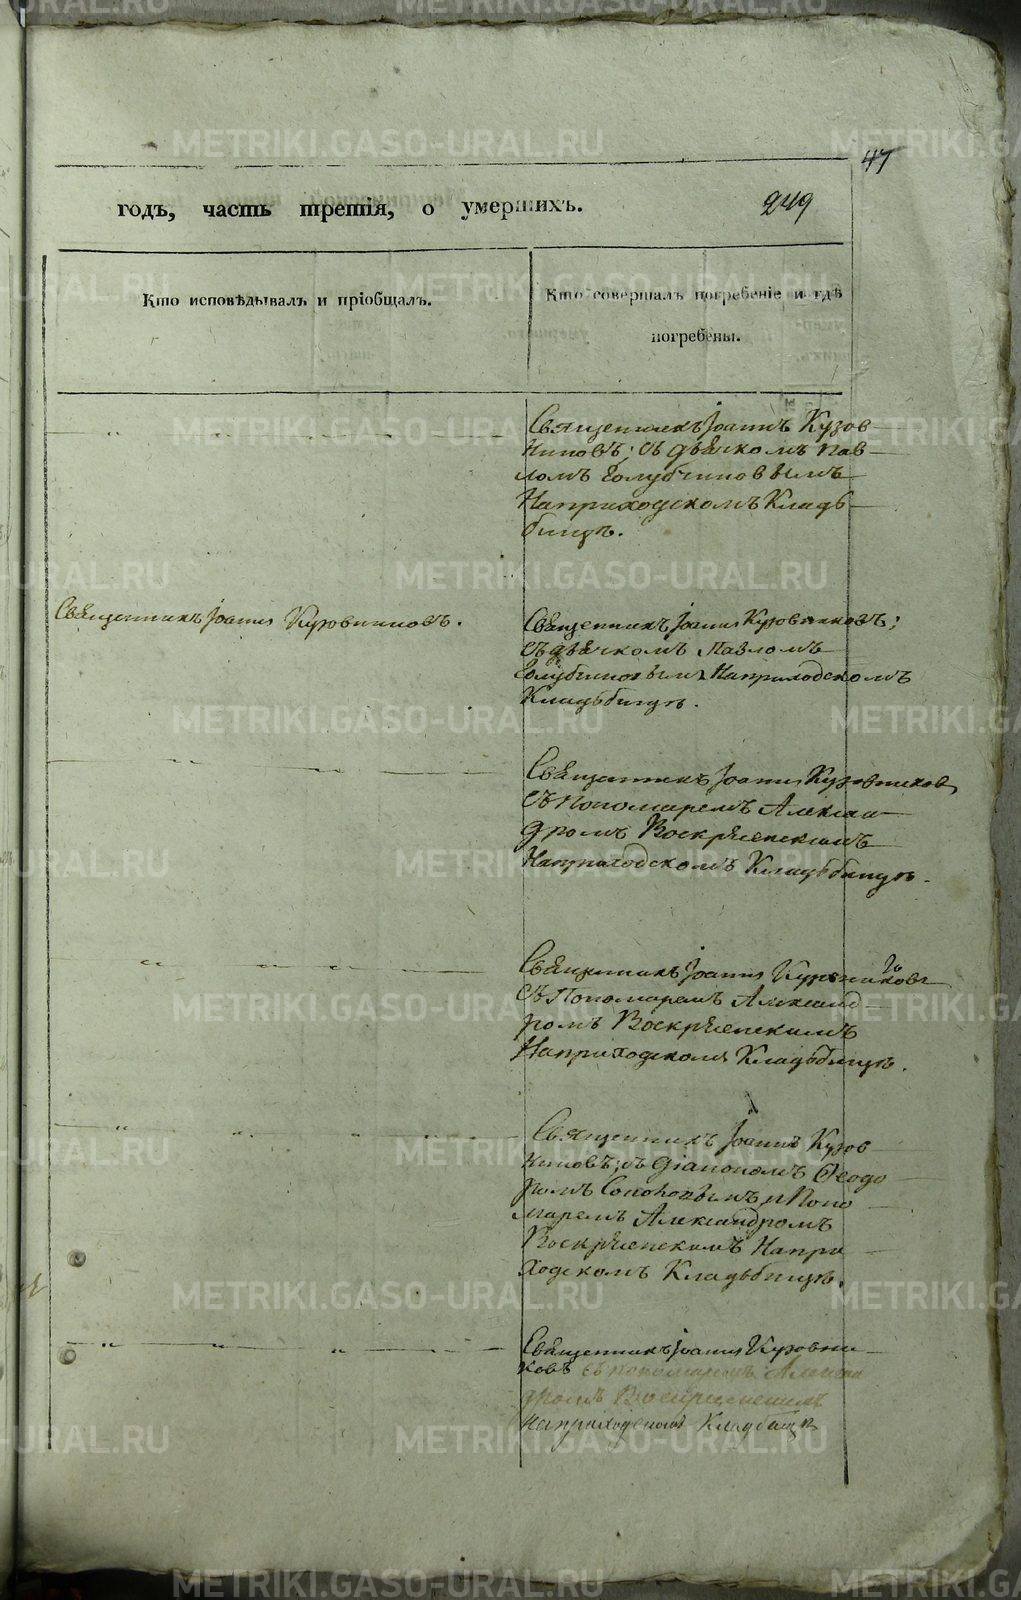 47
годъ, часть третія, о умершихъ.
249
Кто исповѣдывалъ и пріобщалъ.
Кто совершалъ погребеніе и гдѣ
погребены.
Священникъ Іоаннъ Кузов
никовъ; съ дьячкомъ Пав
ломъ Голубчиковымъ
На приходскомъ Кладь
бищѣ.
Священникъ Іоаннъ Кузовниковъ.
Священникъ Іоаннъ Кузовниковъ;
съ дьячкомъ Павломъ
Голубчиковымъ На приходскомъ
Кладьбищѣ.
Священникъ Іоаннъ Кузовниковъ
съ Пономаремъ Алексан
дромъ Воскрѣсенскимъ
На приходскомъ Кладьбищѣ.
Священникъ Іоаннъ Кузовниковъ
съ Пономаремъ Александ
ромъ Воскрѣсенскимъ
На приходскомъ Кладьбищѣ.
Священникъ Іоаннъ Кузов
никовъ; съ діакономъ Ѳеодо
ромъ и Поно
маремъ Александромъ
Воскрѣсенскимъ На при
ходскомъ Кладьбищѣ.
Священникъ Іоаннъ Кузовни
ковъ съ пономаремъ Алексан
дромъ Воскресенскимъ
На приходскомъ Кладбищѣ
METRIKI.GASO-URAL.RU